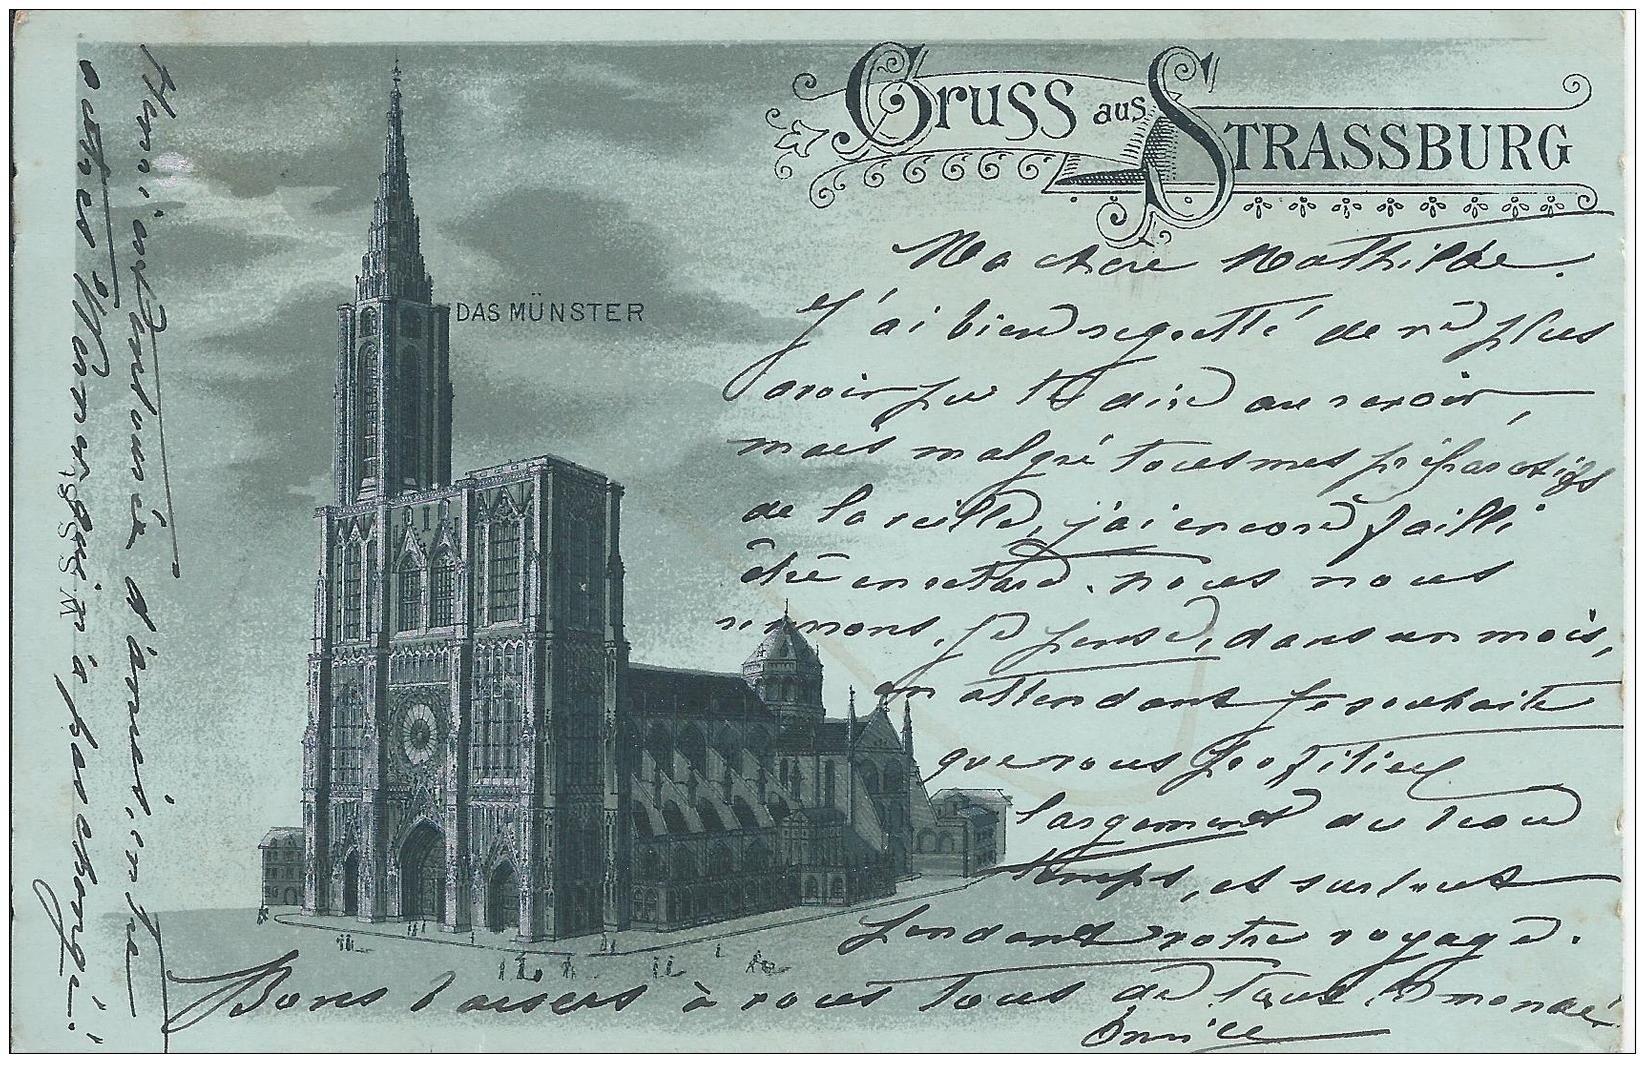 Gruss aus STRASSBURG
DAS MÜNSTER
Ma chère Mathilde.
J'ai bien regretté de ne plus
avoir pu te dire au revoir,
mais malgré tous mes préparatifs
de la veille, j'ai encore failli
être en retard. nous nous
verrons, je pense, dans un mois,
en attendant je souhaite
que vous profitiez
largement du beau
temps, et surtout
pendant votre voyage.
Bons baisers à vous tous de toute
Annice
d'amitié entre
autres à
W.S.S.